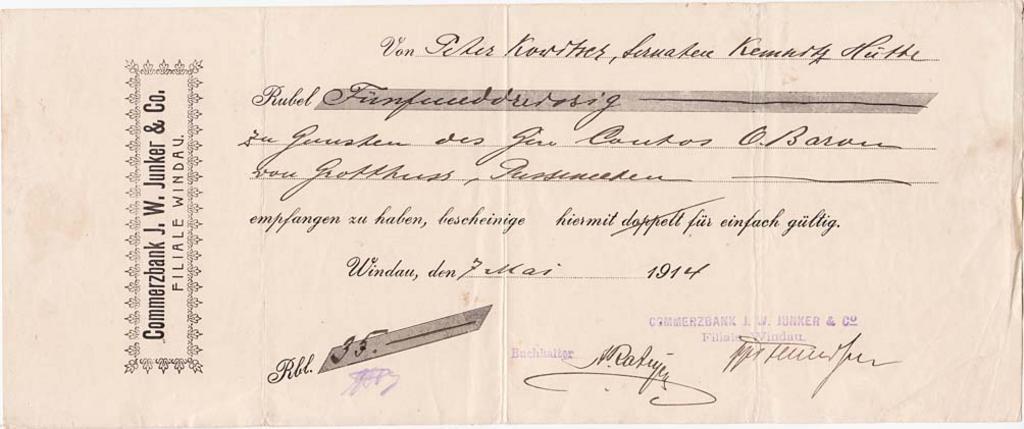 Commerzbank J. W. Junker & Co.
FILIALE WINDAU.
Von Peter Kowitzer, Sernaten Kemnitz Hütte
Rubel Fünfunddreissig
zu Gunsten des Giro Contos O. Baron
von Grotthuss, Pussenecken
empfangen zu haben, bescheinige hiermit doppelt für einfach gültig.
Windau, den 7 Mai 1914
Rbl. 35.
COMMERZBANK J. W. JUNKER & Co
Filiale Windau.
Buchhalter